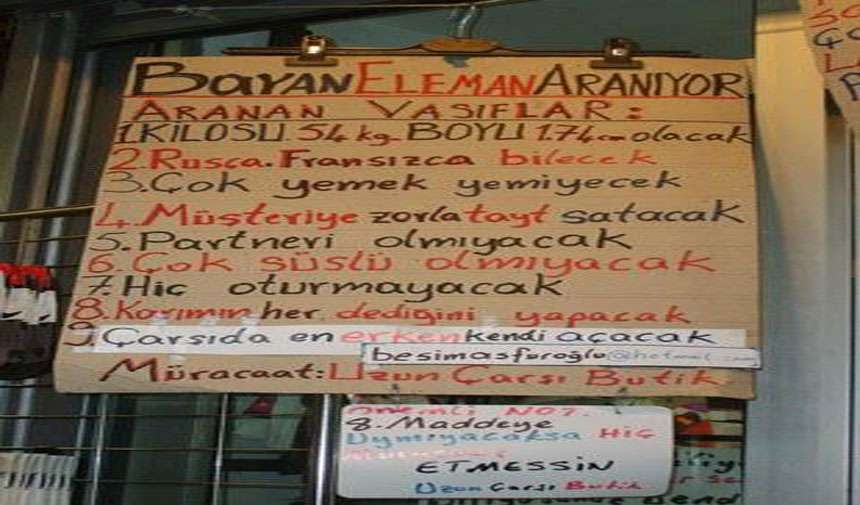 BAYAN ELEMAN ARANIYOR
ARANAN VASIFLAR:
1.KILOSU 54 kg. BOYU 1.74 cm olacak
2.Rusca.Fransızca bilecek
3.Çok yemek yemiyecek
4.Müşteriye zorla tayt satacak
5.Partneri olmıyacak
6.Çok süslü olmıyacak
7.Hiç oturmayacak
8.Karımın her dediğini yapacak
9.Çarşıda en erken kendi açacak
besimasfuroğlu@hotmail.com
Müracaat:Uzun Çarşı Butik
Önemli NOT.
8.Maddeye
Uymıyacaksa HİÇ
ETMESSİN
Uzun Çarşı Butik